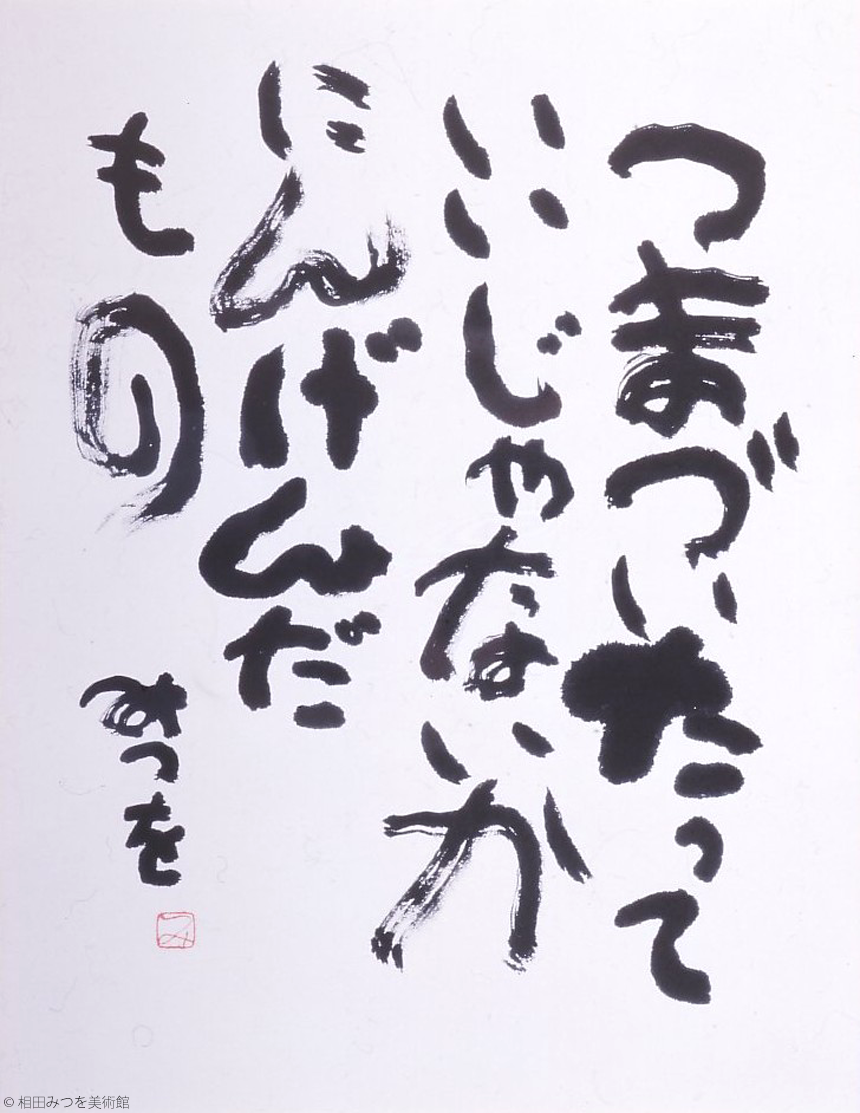 つまづいたって
いいじゃないか
にんげんだ
もの
みつを
み
© 相田みつを美術館